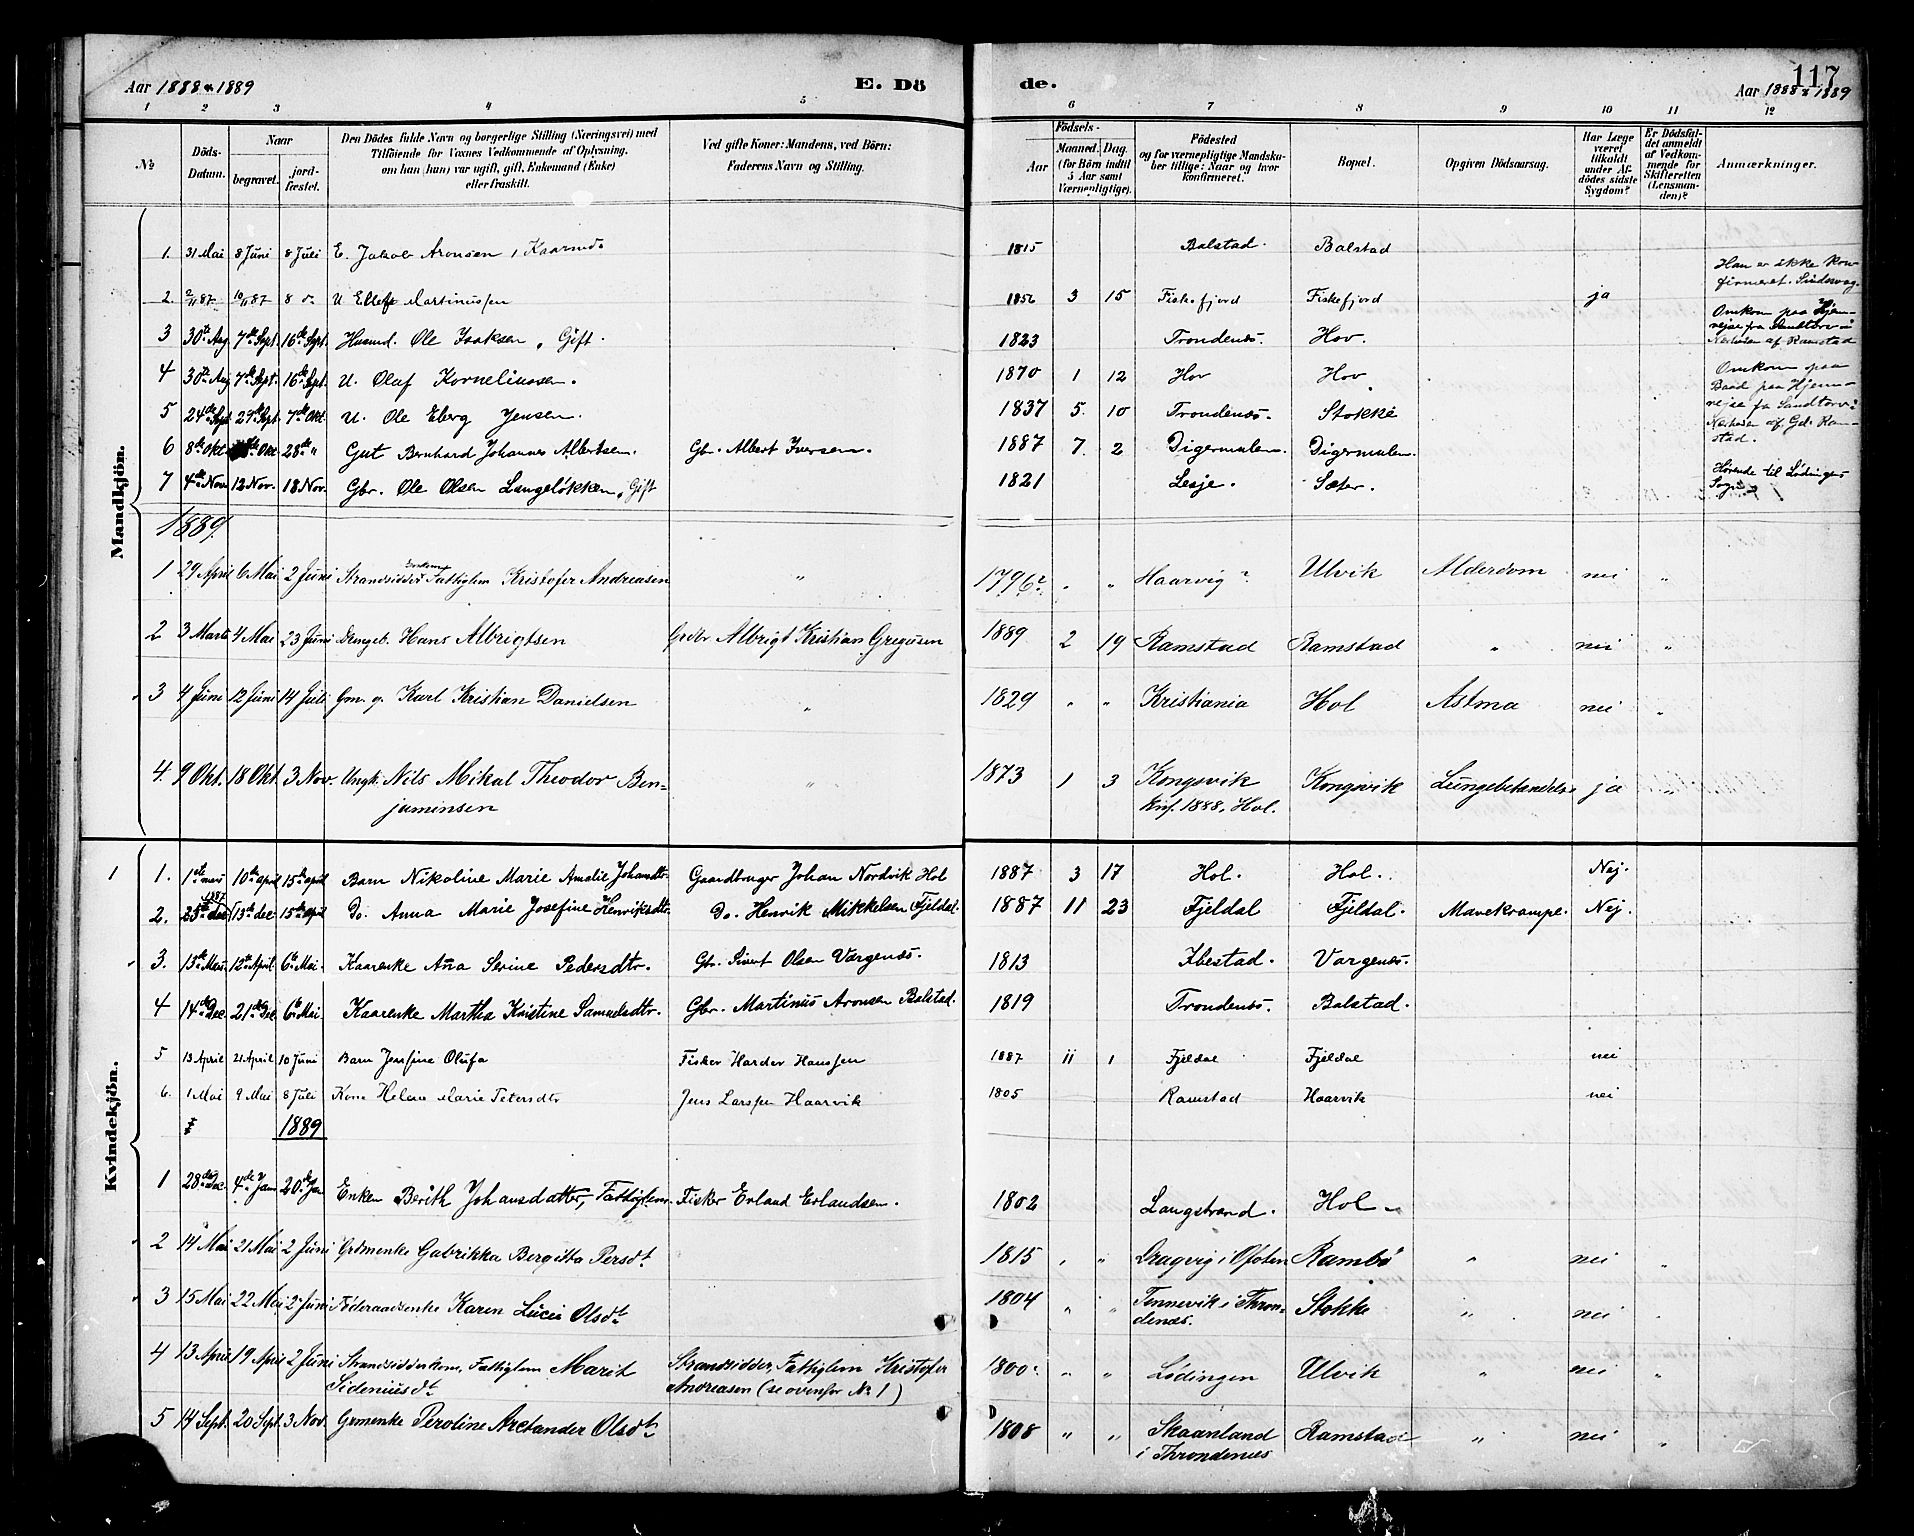 Aar 1888 & 1889
E. Dö
de.
117
Aar 1888 & 1889
1 2 3 4 5 6 7 8 9 10 11 12
No
Döds-Datum.
Naar
begravet.
jord-fæstet.
Den Dödes fulde Navn og borgerlige Stilling (Næringsvei) med
Tilföiende for Voxnes Vedkommende af Oplysning.
om han (hun) var ugift, gift, Enkemand (Enke)
eller fraskilt.
Ved gifte Koner: Mandens, ved Börn:
Faderens Navn og Stilling.
Födsels-
Aar
Maaned. Dag.
(for Börn indtil
5 Aar samt
Værnepligtige).
Födested
og for værnepligtige Mandska-
ber tillige: Naar og hvor
konfirmeret.
Bopæl.
Opgiven Dödsaarsag.
Har Læge
været
tilkaldt
under Af-
dödes sidste
Sygdom?
Er Dödsfal-
det anmeldt
af Vedkom-
mende for
Skifteretten
(Lensman-
den)?
Anmærkninger.
Mandkjön.
1. 31 Mai 8 Juni 8 Juli E. Jakob Aronsen, Kaarmd. 1815 Balstad. Balstad
2. 2/11 87 10/11 87 8 d. U Ellef Martinussen 1856 3 15 Fiskefjord Fiskefjord ja Han er ikke kon-
firmeret. Sindsvag.
3 30te Aug 7de Sept. 16de Sept. Husmd. Ole Isaksen, Gift. 1823 Trondenæs. Hov. Omkom paa Hjem-
reise fra Sandtorv i
Nærheden af Ramstad
4 30te Aug 7de Sept. 16de Sept. U. Olaf Korneliussen. 1870 1 12 Hov Hov. Omkom paa
Baad paa Hjem-
reise fra Sandtorv i
Nærheden af Gd. Ram-
stad.
5 24de Sept 29de Sept. 7de Okt. U. Ole Eberg Jensen. 1837 5. 10 Trondenæs. Stokke
6 8de Okt Okt 28de " Gut Bernhard Johannes Albertsen. Gbr. Albert Iversen. 1887 7. 2 Digermulen. Digermulen.
7 4de Nov. 12 Nov. 18 Nov. Gbr. Ole Olsen Langeløkken, Gift 1821 Lesje. Sæter. Hørende til Lødingen
Sogn.
1889.
1 29 April 6 Mai 2 Juni Strandsidder Fattiglem Kristofer Andreasen " 1796? " " Haarvig? Ulvik Alderdom nei "
2 3 Marts 4 Mai 23 Juni Drengeb. Hans Albrigtsen Grdbr Albrigt Kristian Gregusen 1889 2 19 Ramstad Ramstad " nei "
3 4 Juni 12 Juni 14 Juli Gm. g. Karl Kristian Danielsen " 1829 " " Kristiania Hol Astma nei "
4. 9 Okt. 18 Okt. 3 Nov. Ungk. Nils Mikal Theodor Ben-
jaminsen " 1873 1 3 Kongsvik
Knf. 1888, Hol. Kongsvik Lungebetændelse ja "
Kvindekjön.
1
1. 1ste mars 10de april 15de april Barn Nikoline Marie Amalie Johansdtr. Gaardbruger Johan Nordvik Hol 1887 3 17 Hol. Hol. Nej.
2. 25de dec 1887 13de dec 15de april Do. Anna Marie Josefine Henriksdtr. Do. Henrik Mikkelsen Fjeldal. 1887 11 23 Fjeldal Fjeldal. Mavekrampe. Nej.
3. 13de Mars. 12te April 6te Mai. Kaarenke Aña Serine Pedersdtr. Gbr. Sivert Olsen Vargenæs. 1813 Ibestad. Vargenæs.
4 14de Dec. 21de Dec 6te Mai. Kaarenke Martha Kristine Samuelsdtr. Gbr. Martinus Aronsen Balstad. 1819 Trondenæs. Balstad.
5 13 April 21 April 10 Juni Barn Josefine Olufa Fisker Harder Hanssen 1887 11 1 Fjeldal Fjeldal nei
6. 1 Mai 9 Mai 8 Juli Kone Helene Marie Petersdtr Jens Larssen Haarvik 1805 Ramstad Haarvik nei
1889
1 28de Dec 4de Jan 20de Jan Enken Berith Johansdatter, Fattiglem. Fisker Erland Erlandsen. 1802 Langstrand. Hol.
2 14 Mai 21 Mai 2 Juni Grdmenke Gabrikka Bergitta Persdt. 1815 " " Dragvig i Ofoten Rambø " nei "
3 15 Mai 22 Mai 2 Juni Føderaadsenke Karen Lucie Olsdt. 1804 " " Tennevik i Thron-
denæs. Stokke " nei "
4 13 April 19 April 2 Juni Strandsidderkone, Fattiglem Marit
Sideniusdt. Strandsidder, Fattiglem Kristofer
Andreasen (se ovenfor No 1) 1800? " " Lødingen Ulvik " nei "
5 14 Sept. 20 Sept. 3 Nov. Grmenke Peroline Arctander Olsdt. 1808 " " Skaanland
i Throndenæs Ramstad " nei "